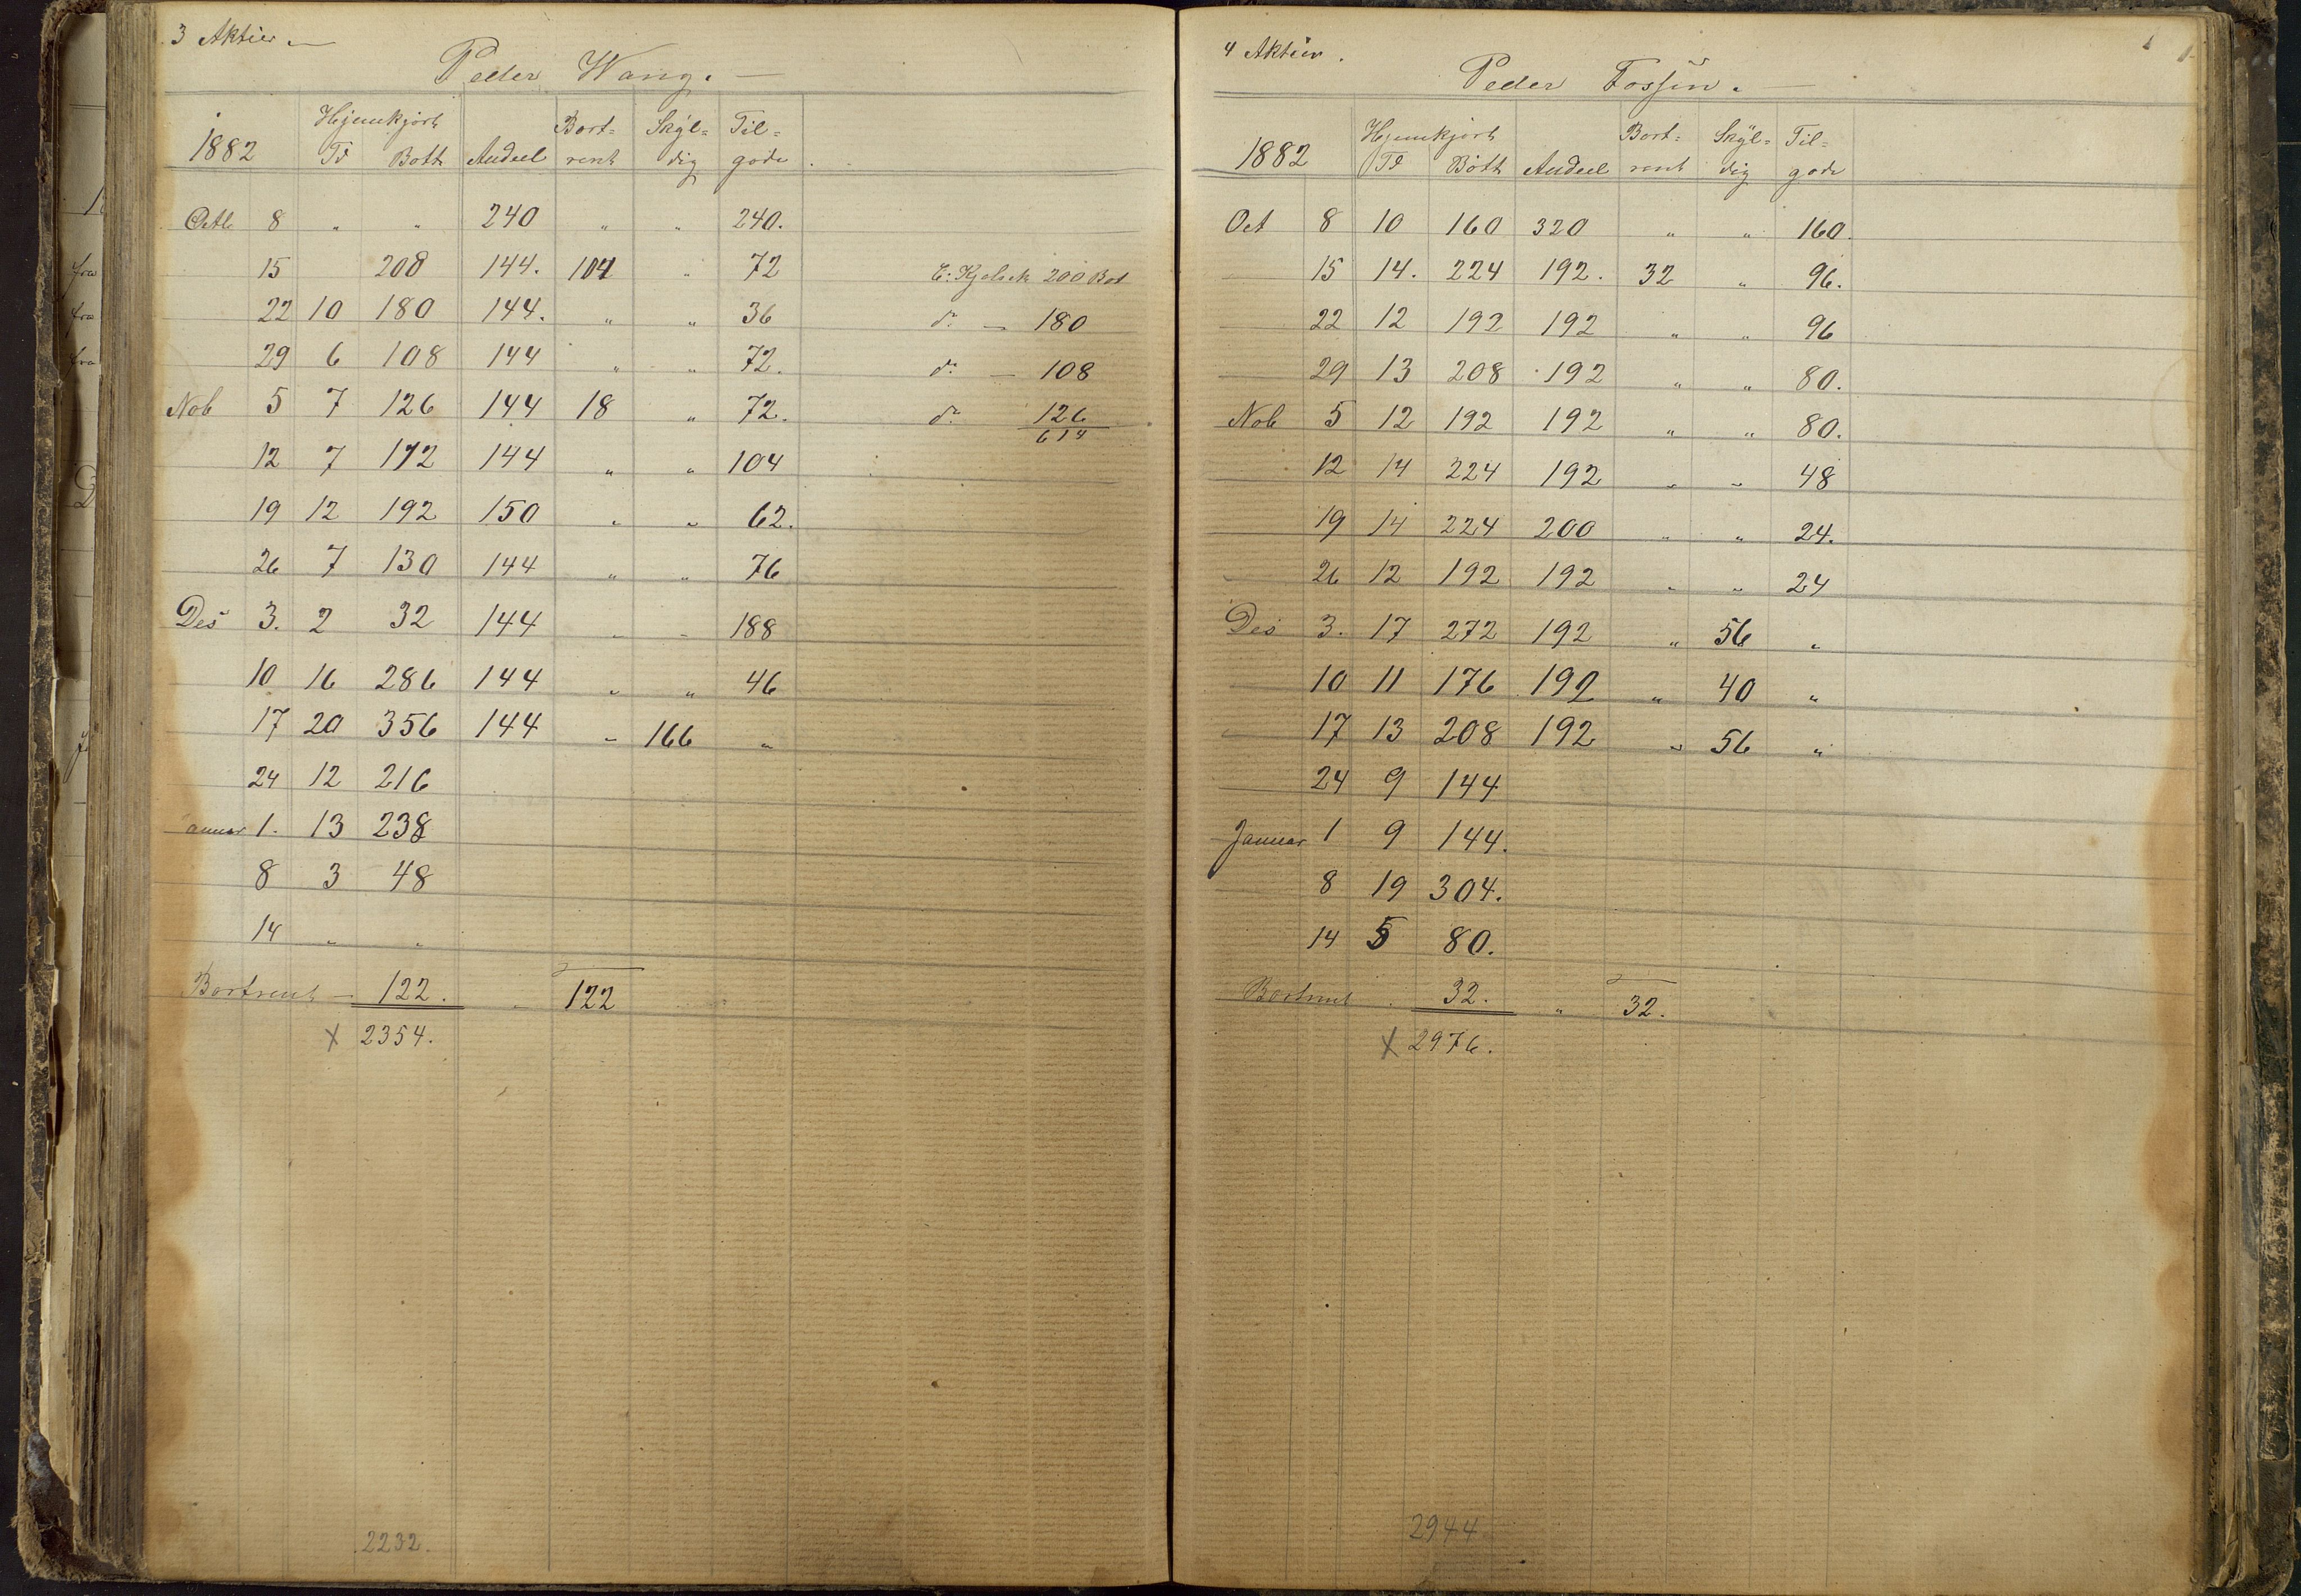 3 Aktier.
Peder Wang.
Hjemkjørt Bort= Skyl= Til=
1882 Td Bøtt Andeel rent dig gode.
Octb 8 " " 240 " " 240.
15 208 144. 104 " 72 E: Kjelsek 200 Bøt
22 10 180 144. " " 36 do — 180
29 6 108 144 " " 72. do — 108
Nob 5 7 126 144 18 " 72. do 126
614
12 7 112 144 " " 104
19 12 192 150 " " 62.
26 7 130 144 " " 76
Des 3. 2 32 144 " " 188
10 16 286 144 " " 46
17 20 356 144 " 166 "
24 12 216
anuar 1. 13 238
8 3 48
14 " "
Bortrent — 122. " 122
x 2354.
2232.
4 Aktier.
Peder Fossen.
Hjemkjørt Bort= Skyl= Til=
1882 Td Bøtt Andeel rent dig gode
Oct 8 10 160 320 " " 160.
15 14. 224 192. 32 " 96.
22 12 192 192 " " 96
29 13 208 192 " " 80.
Nob 5 12 192 192 " " 80.
12 14 224 192 " " 48
19 14 224 200 " " 24.
26 12 192 192 " " 24
Des 3. 17 272 192 " 56 "
10 11 176 192 " 40 "
17 13 208 192 " 56 "
24 9 144
Januar 1 9 144.
8 19 304.
14 5 80.
Bortrent . 32. " 32.
x 2976.
2944